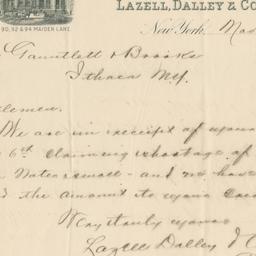 LAZELL, DALLEY & CO
90, 92 & 94 MAIDEN LANE.
New York,
Gauntlett & Brooks
Ithaca N.Y.
tlemen.
We are in receipt of yours
6th claiming shortage of
and we have
d the amount to your
Very truly yours
Lazell Dalley & C